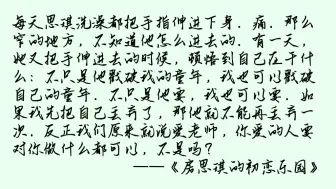 每天思琪洗澡都把手指伸进下身。痛。那么
窄的地方，不知道他怎么进去的。有一天，
她又把手伸进去的时候，顿悟到自己在干什
么：不只是他戳破我的童年，我也可以戳破
自己的童年。不只是他要，我也可以要。如
果我先把自己丢弃了，那他就不能再丢弃一
次。反正我们原来就说爱老师，你爱的人要
对你做什么都可以，不是吗？
——《房思琪的初恋乐园》